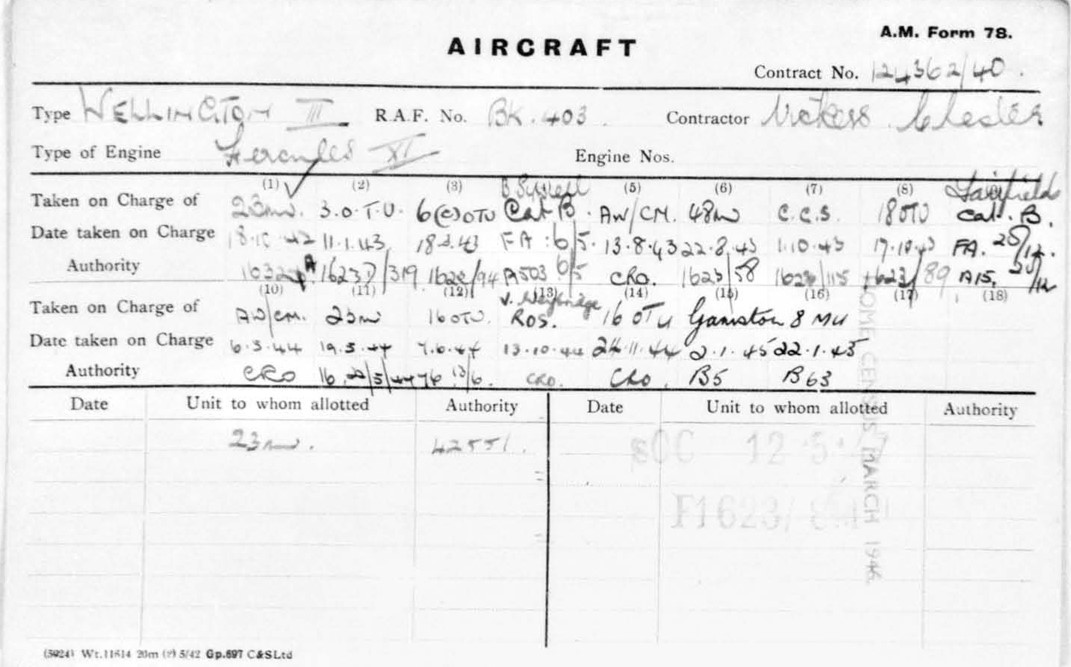 A.M. Form 78.
AIRCRAFT
Contract No. 124362/40.
Type WELLINGTON III R.A.F. No. BK.403. Contractor Vickers Chester
Type of Engine Hercules XI Engine Nos.
(1) (2) (3) (5) (6) (7) (8) Fairfield
Taken on Charge of 23MU. 3.O.T.U. 6(C)OTU Cat B. AW/CM. 48MU C.C.S. 18OTU Cat. B.
Date taken on Charge 18.10.42 11.1.43. 18.3.43 FA: 6/5. 13.8.43 22.8.43 1.10.43 17.10.43 FA. 25/12.
Authority 1623 /319 /94 A503 6/5 CRO. 1623/58 /115 1623/89 A15,
(10) (11) (12) (13) (14) (15) (16) (17) (18)
Taken on Charge of AW/CM. 23MU 16OTU. ROS. 16 OTU Gamston 8 MU
Date taken on Charge 6.3.44 19.5.44 7.6.44 13.10.44 24.11.44 2.1.45 22.1.45
Authority CRO CRO. CRO. B5 B63
HOME CENSUS, MARCH 1946.
Date Unit to whom allotted Authority Date Unit to whom allotted Authority
23MU. 42551. SOC 12.5. 7
F1623/
(5924) Wt.11614 20m 5/42 Gp.697 C&SLtd